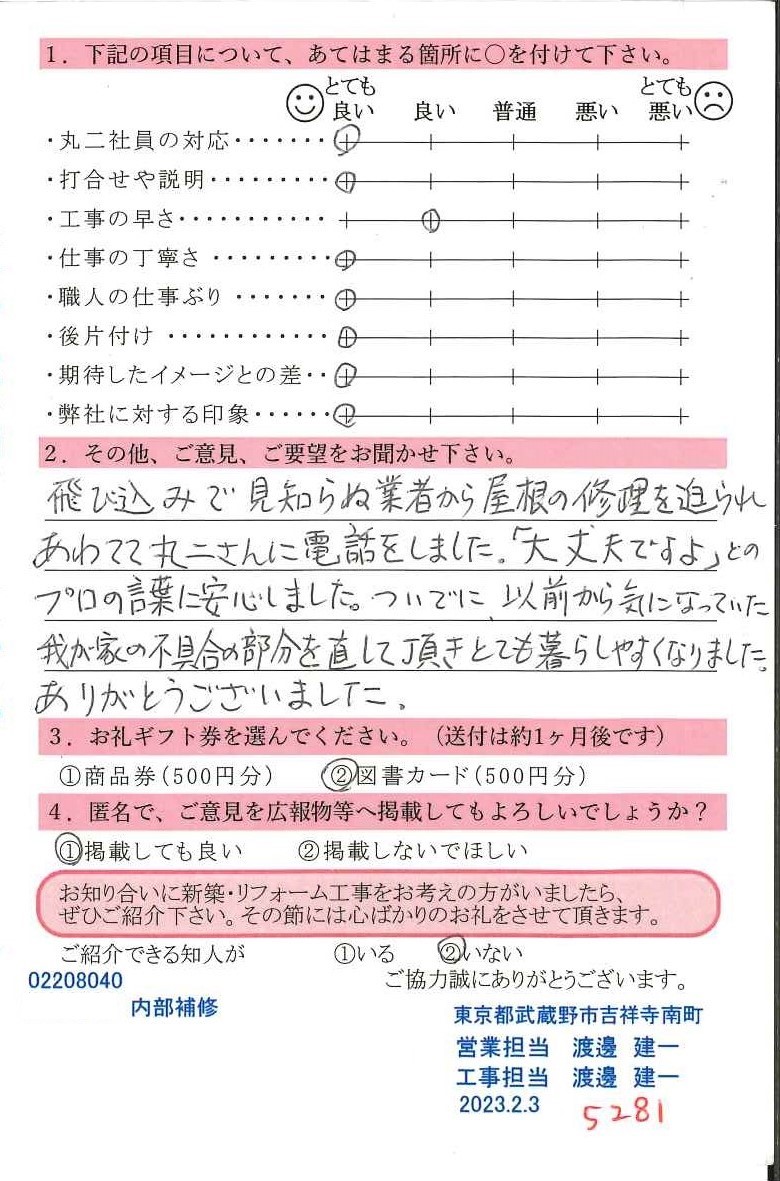 1．下記の項目について、あてはまる箇所に○を付けて下さい。
とても良い 良い 普通 悪い とても悪い
・丸二社員の対応・・・・・・・
・打合せや説明・・・・・・・・・
・工事の早さ・・・・・・・・・・・
・仕事の丁寧さ・・・・・・・・・
・職人の仕事ぶり・・・・・・・
・後片付け・・・・・・・・・・・・
・期待したイメージとの差・・
・弊社に対する印象・・・・・・
2．その他、ご意見、ご要望をお聞かせ下さい。
飛び込みで見知らぬ業者から屋根の修理を迫られ
あわてて丸二さんに電話をしました。「大丈夫ですよ」との
プロの言葉に安心しました。ついでに、以前から気になっていた
我が家の不具合の部分を直して頂きとても暮らしやすくなりました。
ありがとうございました。
3．お礼ギフト券を選んでください。（送付は約1ヶ月後です）
①商品券(500円分) ②図書カード(500円分)
4．匿名で、ご意見を広報物等へ掲載してもよろしいでしょうか？
①掲載しても良い ②掲載しないでほしい
お知り合いに新築・リフォーム工事をお考えの方がいましたら、
ぜひご紹介下さい。その節には心ばかりのお礼をさせて頂きます。
ご紹介できる知人が ①いる ②いない
02208040 ご協力誠にありがとうございます。
内部補修
東京都武蔵野市吉祥寺南町
営業担当 渡邊 建一
工事担当 渡邊 建一
2023.2.3
5281